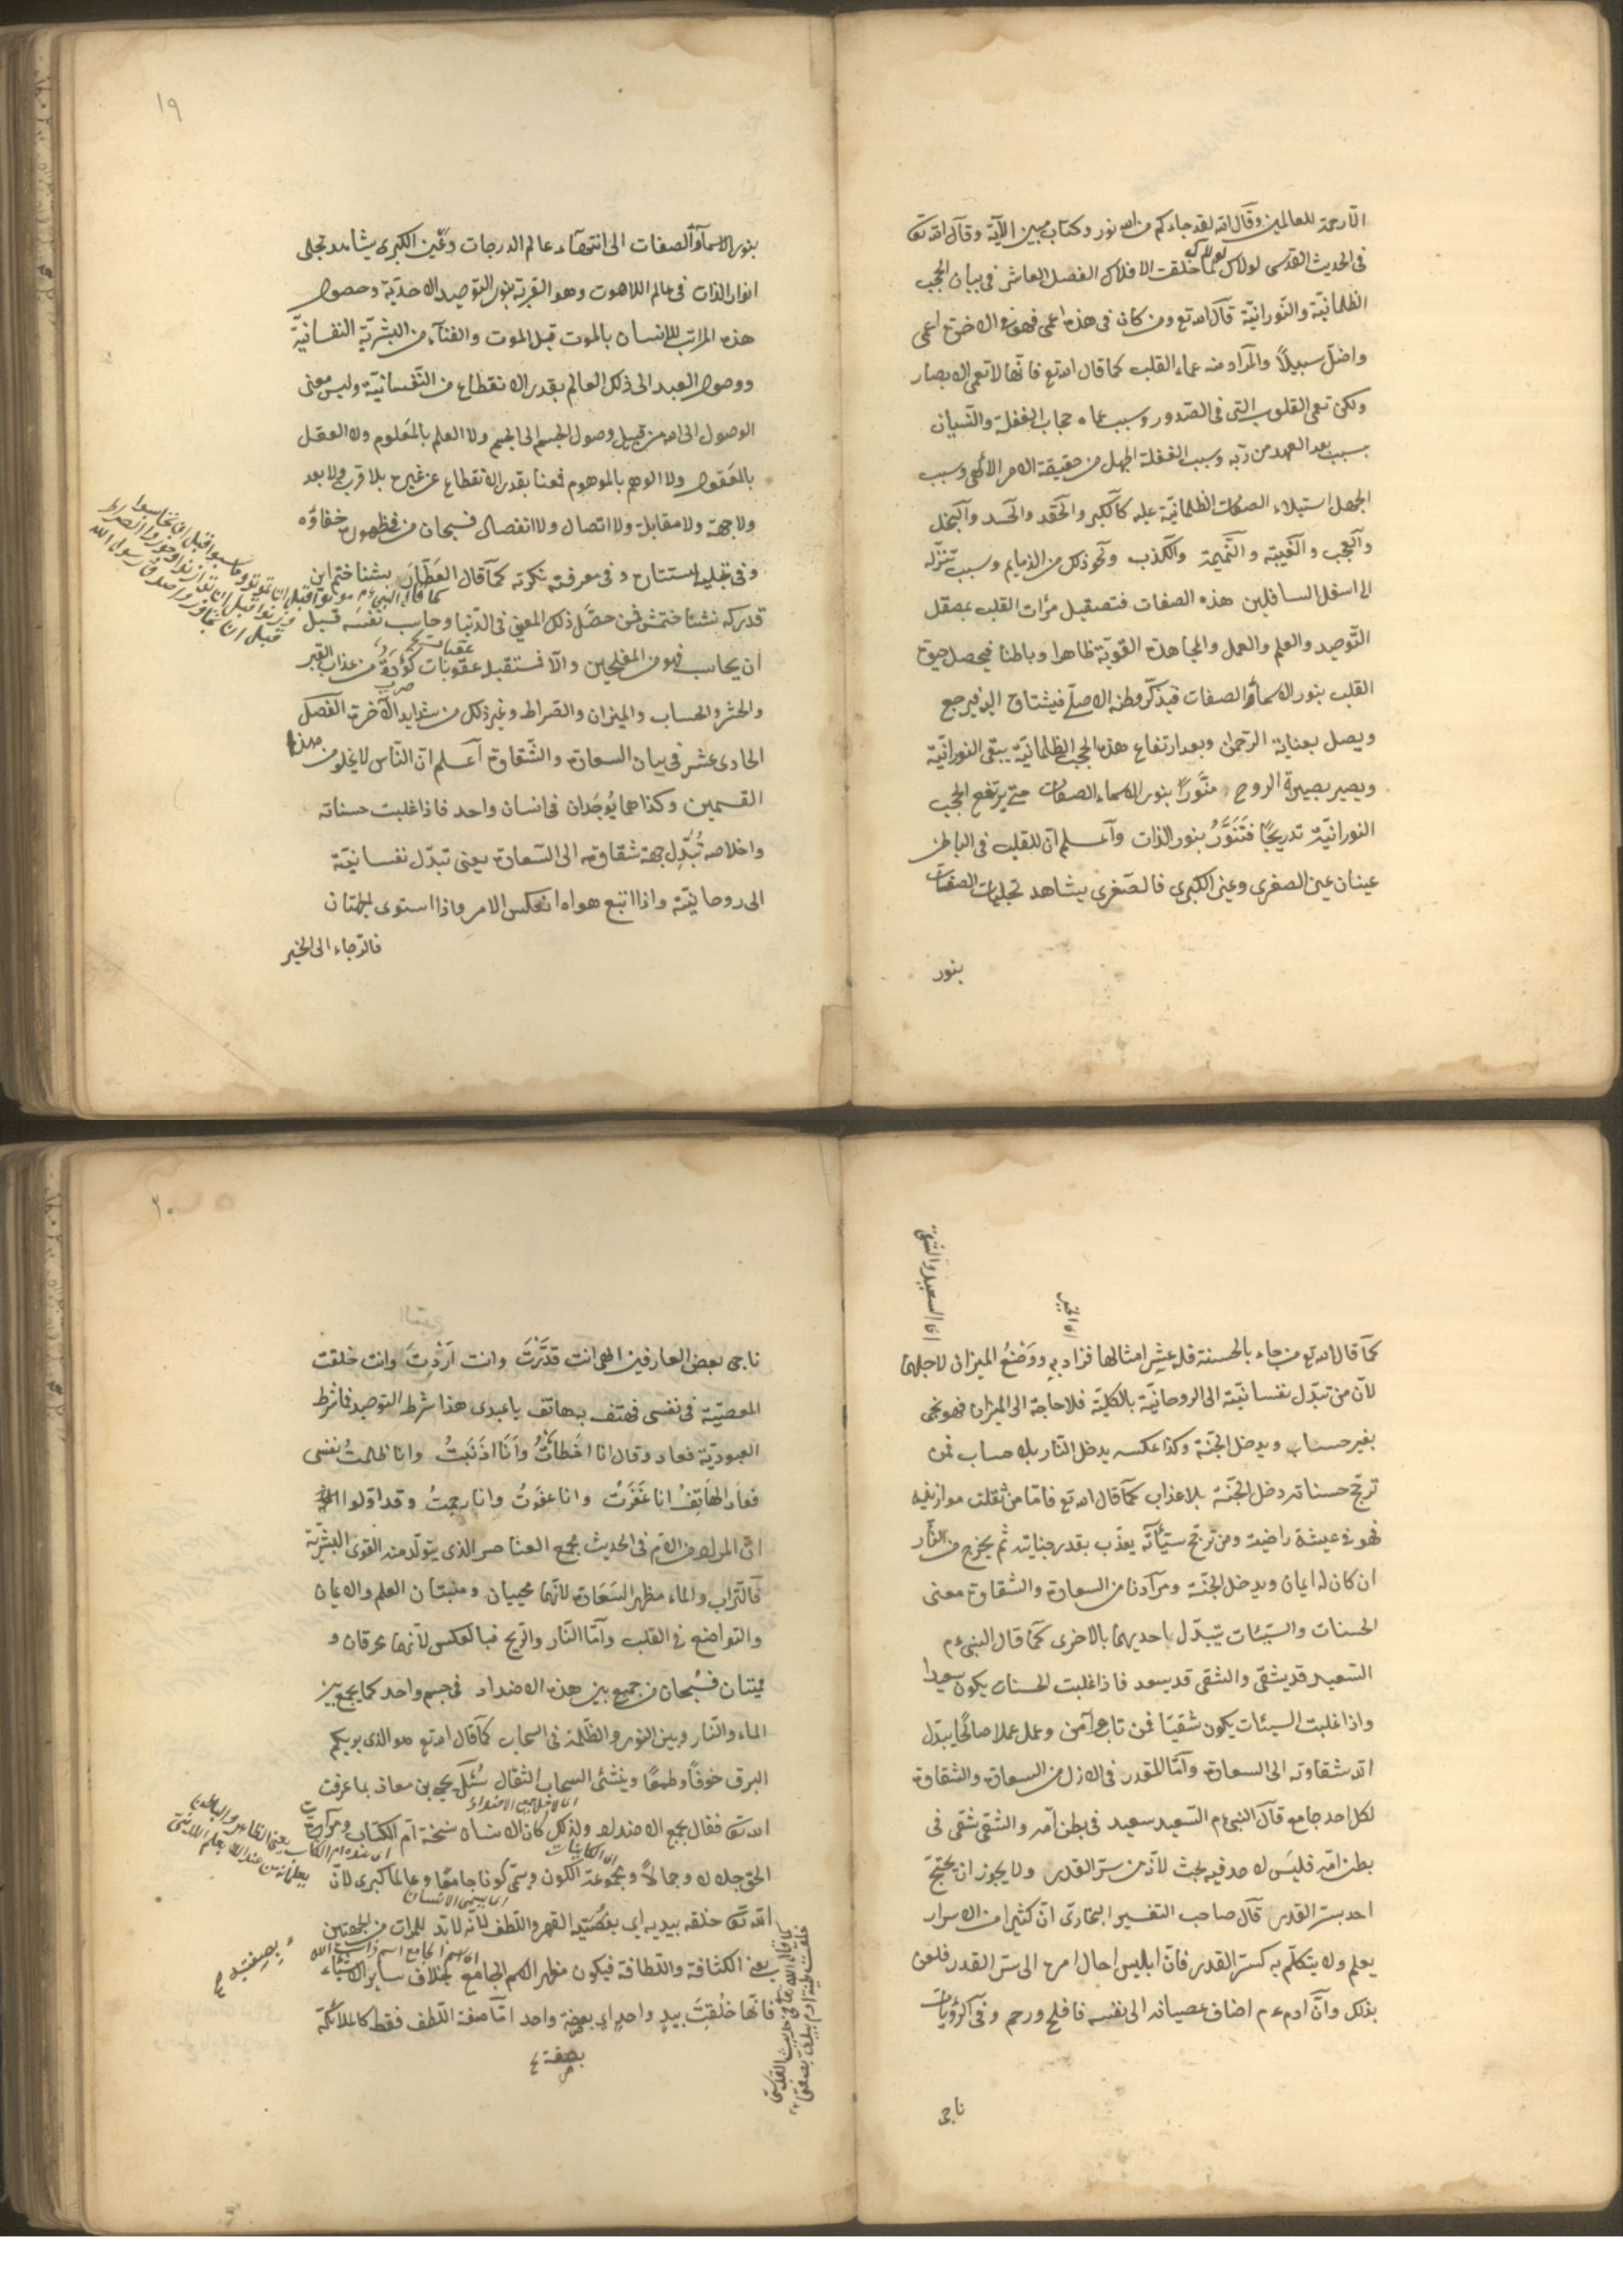 الّا رحمة للعالمين وقال الله لقد جاءكم من الله نور وكتاب مبين الآية وقال الله تعا
فى الحديث القدسى لولاك لما خلقت الافلاك الفصل العاشر فى بيان الحجب
الظلمانيّة والنّورانيّة قال الله تع ومن كان فى هذه اعمى فهو فى الاخرة اعمى
واضلّ سبيلًا والمراد منه عماء القلب كما قال الله تع فانّها لا تعمى الابصار
ولكن تعمى القلوب التى فى الصّدور وسبب عماه حجاب الغفلة والنّسيان
بسبب بعد العهد من ربّه وسبب الغفلة الجهل من حقيقة الامر الالٰهى وسبب
الجهل استيلاء الصفات الظلمانيّة عليه كالكبر والحقد والحسد والبخل
والعجب والغيبة والنّميمة والكذب ونحو ذلك من الذمايم وسبب تنزّله
الى اسفل السافلين هذه الصفات فتصقيل مرأت القلب بمصقل
التّوحيد والعلم والعمل والمجاهدة القويّة ظاهرا وباطنا فيحصل حيوة
القلب بنور الاسماء والصفات فيذكّر وطنه الاصلى فيشتاق اليه فيرجع
ويصل بعناية الرّحمن وبعد ارتفاع هذه الحجب الظلمانيّة يبقى النورانيّة
ويصير بصيرة الروح منوّرًا بنور الاسماء الصفات حتى يرتفع الحجب
النورانيّة تدريجًا فتنوّر بنور الذات واعلم انّ للقلب فى الباطن
عينان عين الصغرى وعين الكبرى فالصّغرى يشاهد تجليات الصفات
بنور
١٩
بنور الاسماء والصفات الى انتهاء عالم الدرجات وعين الكبرى يشاهد تجلى
انوار الذات فى عالم اللاهوت وهو القربة بنور التوحيد الاحديّة وحصول
هذه المراتب للانسان بالموت قبل الموت والفناء من البشريّة النفسانيّة
ووصول العبد الى ذلك العالم بقدر الانقطاع من النّفسانيّة وليس معنى
الوصول الى الله من قبيل وصول الجسم الى الجسم ولا العلم بالمعلوم ولا العقل
بالمعقول ولا الوهم بالموهوم فمعناه بقدر الانقطاع عن غيره بلا قرب ولا بعد
ولا جهة ولا مقابلة ولا اتصال ولا انفصال فسبحان من فى ظهوره خفاؤه
وفى تجليه استتاره وفى معرفته نكرته كما قال العطّار بشناختم اين
كما قال النبىء م موتوا قبل ان تموتوا وحاسبوا قبل ان تحاسبوا
قدركه نشناختمش فمن حصّل ذلك المعنى فى الدّنيا وحاسب نفسه قبل
ان يحاسب فهو من المفلحين والا فستقبل عقوبات كؤدة من عذاب القبر
والحشر والحساب والميزان والصّراط وغير ذلك من شدايد الآخرة الفصل
الحادى عشر فى بيان السعادة والشّقاوة اعلم انّ النّاس لا يخلو من هذا
القسمين وكذا هما يُوجَدان فى انسان واحد فاذا غلبت حسناته
واخلاصه تُبدّل جهة شقاوته الى السّعادة يعنى تبدّل نفسانيّته
الى روحانيّته واذا اتبع هواه انعكس الامر واذا استوى الجهتان
فالرّجاء الى الخير
اى السعيد والشقى
كما قال الله تع من جاء بالحسنة فله عشر امثالها فزاد به ووضع الميزان لاجلهما
لانّ من تبدّل نفسانيّته الى الروحانيّة بالكليّة فلا حاجة الى الميزان فهو يجى
بغير حساب ويدخل الجنّة وكذا عكسه يدخل النّار بلا حساب فمن
ترجّح حسناته دخل الجنّة بلا عذاب كما قال الله تع فامّا من ثقلت موازينه
فهو فى عيشة راضية ومن ترجّح سيّآته يعذّب بقدر جناياته ثم يخرج من النّار
ان كان له ايمان ويدخل الجنّة ومرادنا من السعادة والشقاوة معنى
الحسنات والسيّئات يتبدّل احديهما بالاخرى كما قال النبىء م
السّعيد قد يشقى والشقى قد يسعد فاذا غلبت الحسنات يكون سعيدا
واذا غلبت السيئات يكون شقيّا فمن تاب وآمن وعمل عملا صالحًا يبدّل
الله شقاوته الى السعادة وامّا المقدر فى الازل من السعادة والشقاوة
لكل احد جامع قال النبىء م السّعيد سعيد فى بطن امّه والشّقى شقى فى
بطن امّه فليس لاحد فيه بحث لانّه من سرّ القدر ولا يجوز ان يحتجّ
احد بسرّ القدر قال صاحب التفسير البخارى انّ كثيرا من الاسرار
يعلم ولا يتكلّم به كسرّ القدر فانّ ابليس احال امره الى سرّ القدر فلعن
بذلك وانّ ادم ء م اضاف عصيانه الى نفسه فافلح ورحم وفى الروايات
ناجى
٢٠
ناجى بعض العارفين الهى انت قدّرتَ وانت اردتَ وانت خلقت
المعصيّة فى نفسى فهتف به هاتف يا عبدى هذا شرط التوحيد فما شرط
العبوديّة فعاد وقال انا اخطأتُ وانا اذنبتُ وانا ظلمتُ نفسى
فعاد الهاتف انا غفرت وانا عفوت وانا رحمتُ وقد اوّلوا
انّ المراد من الامّ فى الحديث مجمع العناصر الذى يتولّد منه القوى البشريّة
فالتراب والماء مظهر السّعادة لانّهما محييان ومنبتان العلم والايمان
والتواضع فى القلب وامّا النّار والرّيح فبالعكس لانهما محرقان و
مميتان فسُبحان من جمع بين هذه الاضداد فى جسم واحد كما يجمع بين
الماء والنّار وبين النور والظّلمة فى السحاب كما قال الله تع هو الذى يريكم
البرق خوفًا وطمعًا وينشئ السحاب الثقال سُئل يحيى بن معاذ بما عرفت
الله تعا فقال بجمع الاضداد ولذلك كان الانسان نسخة امّ الكتاب ومرآت
الحق جلالا وجمالًا ومجموعة الكون ويسمّى كونا جامعًا وعالما كبرى لانّ
اى يسمى الانسان
الله تعا خلقه بيديه اى بصفتيه القهر واللّطف لانّه لابدّ للمرات من الجهتين
يعنى الكثافة واللّطافة فيكون مظهر الاسم الجامع بخلاف ساير الاشياء
فانّها خُلقت بيدٍ واحدٍ اى بصفة واحد امّا صفة اللّطف فقط كالملائكة
بصفتيه
بصفة